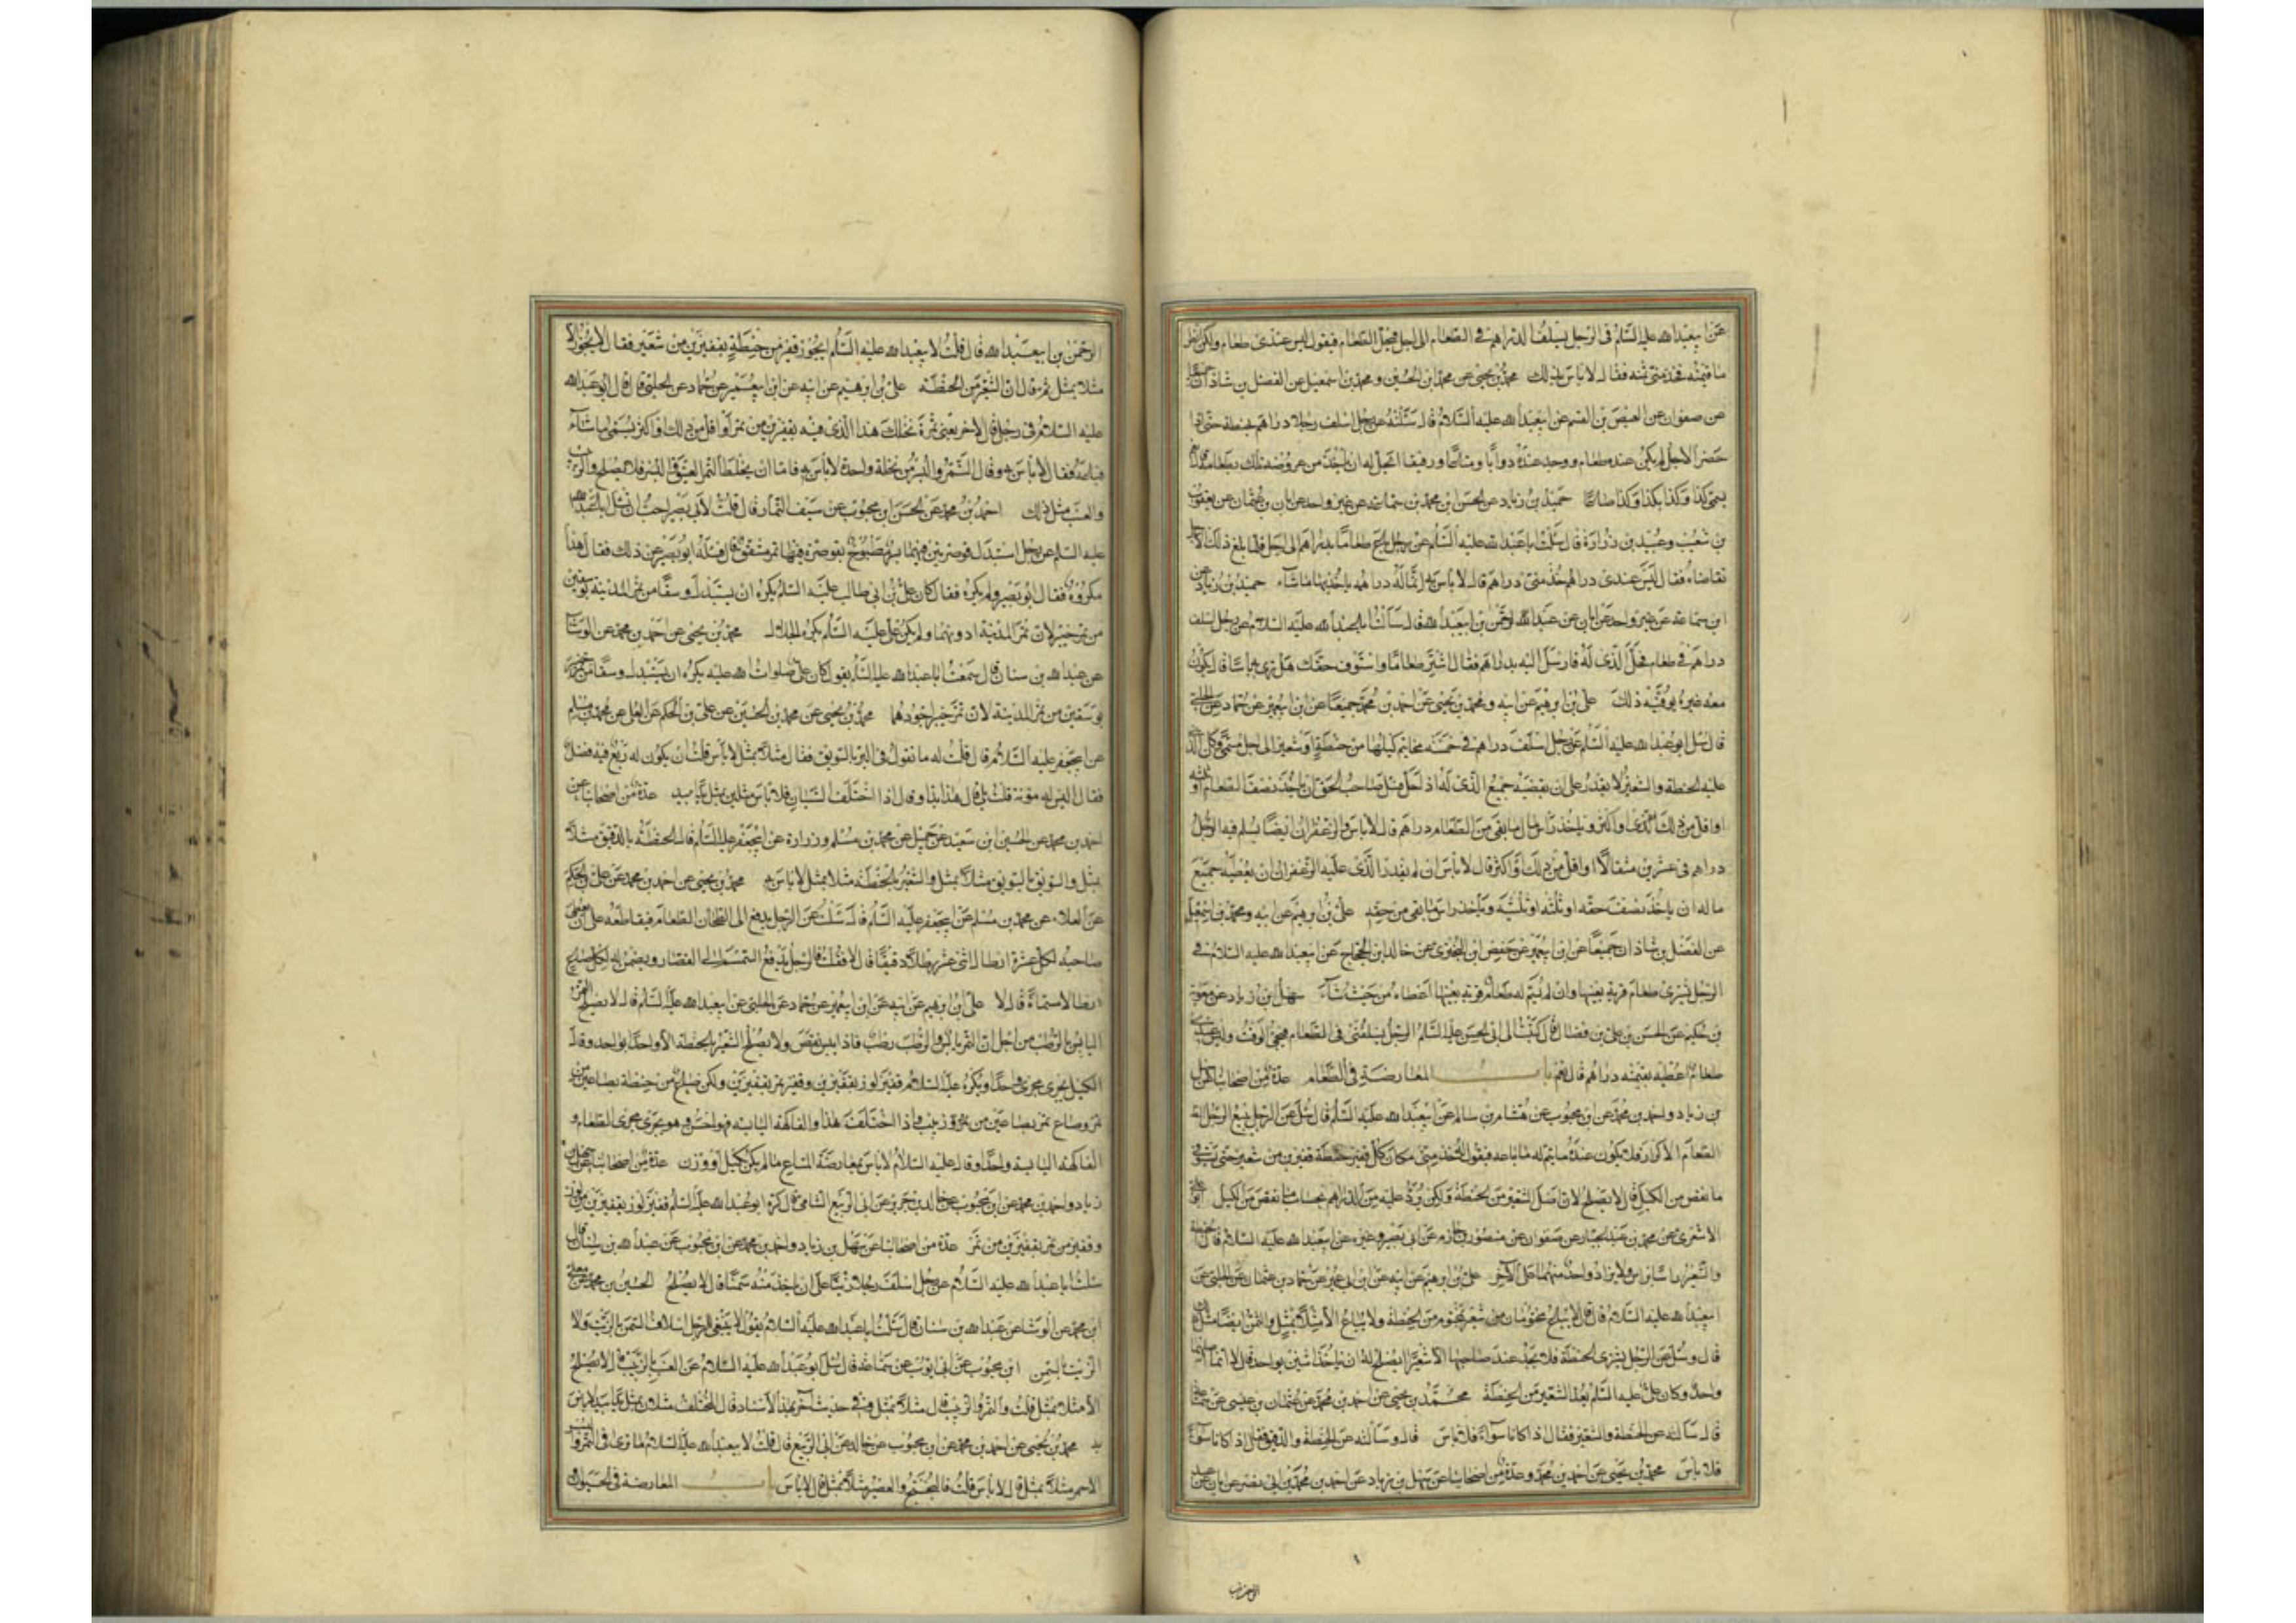 عن ابيعبدالله عليه السلام فى الرجل يسلف الدراهم فى الطعام الى اجل فيحل الطعام فيقول ليس عندى طعام ولكن انظر
ما قيمته فخذ منى ثمنه فقال لا باس بذلك محمد بن يحيى عن محمد بن الحسين ومحمد بن اسمعيل عن الفضل بن شاذان جميعا
عن صفوان عن العيص بن القسم عن ابيعبدالله عليه السلام قال سئلته عن رجل اسلف رجلا دراهم بحنطة حتى اذا
حضر الاجل لم يكن عنده طعام ووجد عنده دوابا ومتاعا ورقيقا ايحل له ان ياخذ من عروضه تلك بطعامه قال نعم
يسمى كذا وكذا بكذا وكذا صاعا حميد بن زياد عن الحسن بن محمد بن سماعة عن غير واحد عن ابان بن عثمان عن يعقوب
بن شعيب وعبيد بن زرارة قال سئلت ابا عبدالله عليه السلام عن رجل باع طعاما بدراهم الى اجل فلما بلغ ذلك الاجل
تقاضاه فقال ليس عندى دراهم خذ منى دراهم قال لا باس به انما له دراهمه ياخذ بها ما شاء حميد بن زياد عن
ابن سماعة عن غير واحد عن ابان عن عبد الرحمن بن ابيعبدالله قال سالت ابا عبدالله عليه السلام عن رجل اسلف
دراهم فى طعام فحل الذى له فارسل اليه بدراهم فقال اشتر طعاما واستوف حقك هل ترى به باسا قال يكون
معه غيره يوفيه ذلك على بن ابرهيم عن ابيه ومحمد بن يحيى عن احمد بن محمد جميعا عن ابن ابيعمير عن حماد عن الحلبى
قال سئل ابو عبدالله عليه السلام عن رجل اسلف دراهم فى خمسة مخاتيم كيلها من حنطة او شعير الى اجل مسمى وكان الذى
عليه الحنطة والشعير لا يقدر على ان يقضيه جميع الذى له اذا حل فسئل صاحب الحق ان ياخذ نصف الطعام او ثلثه
او اقل من ذلك او اكثر وياخذ راس مال ما بقى من الطعام دراهم قال لا باس والزعفران ايضا يسلم فيه الرجل
دراهم فى عشرين مثقالا او اقل من ذلك او اكثر قال لا باس ان لم يقدر الذى عليه الزعفران ان يعطيه جميع
ماله ان ياخذ نصف حقه او ثلثه او ثلثيه وياخذ راس ما بقى من حقه على بن ابرهيم عن ابيه ومحمد بن اسمعيل
عن الفضل بن شاذان جميعا عن ابن ابيعمير عن حفص بن البخترى عن خالد بن الحجاج عن ابيعبدالله عليه السلام فى
الرجل يشترى طعام قرية بعينها وان لم يسم له طعام قرية بعينها اعطاه من حيث شاء سهل بن زياد عن معوية
بن حكيم عن الحسن بن على بن فضال قال كتبت الى ابى الحسن عليه السلام الرجل يسلفنى فى الطعام فيجئ الوقت وليس عندى
طعام اعطيه بقيمته دراهم قال نعم باب المعارضة فى الطعام عدة من اصحابنا عن سهل
بن زياد واحمد بن محمد عن ابن محبوب عن هشام بن سالم عن ابيعبدالله عليه السلام قال سئل عن الرجل يبيع الرجل
الطعام الاكرار فلا يكون عنده ما يتم له ما باعه فيقول له خذ منى مكان كل قفيز حنطة قفيزين من شعير حتى تستوفى
ما نقص من الكيل قال لا يصلح لان اصل الشعير من الحنطة ولكن يرد عليه من الدراهم بحساب ما نقص من الكيل ابو على
الاشعرى عن محمد بن عبد الجبار عن صفوان عن منصور بن حازم عن ابى بصير وغيره عن ابيعبدالله عليه السلام قال الحنطة
والشعير راسا براس ولا يزاد واحد منهما على الاخر على بن ابرهيم عن ابيه عن ابن ابى عمير عن حماد بن عثمان عن الحلبى عن
ابيعبدالله عليه السلام قال قال لا يباع مختومان من شعير بمختوم من حنطة ولا يباع الا مثلا بمثل والتمر ايضا مثل ذلك
قال وسئل عن الرجل يشترى الحنطة فلا يجد عند صاحبها الا شعيرا ايصلح له ان ياخذ اثنين بواحد قال لا انما اصلهما
واحد وكان على عليه السلام يعد الشعير من الحنطة محمد بن يحيى عن احمد بن محمد عن عثمان بن عيسى عن سماعة
قال سالته عن الحنطة والشعير فقال اذا كانا سواء فلا باس قال وسالته عن الحنطة والدقيق فقال اذا كانا سواء
فلا باس محمد بن يحيى عن احمد بن محمد وعدة من اصحابنا عن سهل بن زياد عن احمد بن محمد بن ابى نصر عن ابان عن عبد
الرحمن بن ابيعبدالله قال قلت لابيعبدالله عليه السلام ايجوز قفيز من حنطة بقفيزين من شعير فقال لا يجوز الا
مثلا بمثل ثم قال ان الشعير من الحنطة على بن ابرهيم عن ابيه عن ابن ابيعمير عن حماد عن الحلبى قال قال ابو عبدالله
عليه السلام فى رجل قال لاخر بعنى ثمرة نخلك هذا الذى فيه بقفيزين من تمر او اقل من ذلك او اكثر يسمى ما شاء
فباعه فقال لا باس به وقال التمر والبسر من نخلة واحدة لا باس به فاما ان يخلط التمر العتيق والبسر فلا يصلح والزبيب
والعنب مثل ذلك احمد بن محمد عن الحسن بن محبوب عن سيف التمار قال قلت لابى بصير احب ان تسئل ابا عبدالله
عليه السلام عن رجل استبدل قوصرتين فيهما بسر مطبوخ بقوصرة فيها تمر مشقق قال فسئله ابو بصير عن ذلك فقال هذا
مكروه فقال ابو بصير ولم يكره فقال كان على بن ابى طالب عليه السلام يكره ان يستبدل وسقا من تمر المدينة بوسقين
من تمر خيبر لان تمر المدينة ادونهما ولم يكن على عليه السلام يكره الحلال محمد بن يحيى عن احمد بن محمد عن الوشاء
عن عبدالله بن سنان قال سمعت ابا عبدالله عليه السلام يقول كان على صلوات الله عليه يكره ان يستبدل وسقا من تمر خيبر
بوسقين من تمر المدينة لان تمر خيبر اجودهما محمد بن يحيى عن محمد بن الحسين عن على بن الحكم عن العلا عن محمد بن مسلم
عن ابيجعفر عليه السلام قال قلت له ما تقول فى البر بالسويق فقال مثلا بمثل لا باس قلت ان يكون له ريع فيه فضل
فقال اليس له مؤنة قلت بلى قال هذا بذا وقال اذا اختلف الشيئان فلا باس مثلين بمثل يدا بيد عدة من اصحابنا عن
احمد بن محمد عن الحسين بن سعيد عن جميل عن محمد بن مسلم وزرارة عن ابيجعفر عليه السلام قال الحنطة بالدقيق مثلا
بمثل والسويق بالسويق مثلا بمثل والشعير بالحنطة مثلا بمثل لا باس به محمد بن يحيى عن احمد بن محمد عن على بن الحكم
عن العلاء عن محمد بن مسلم عن ابيجعفر عليه السلام قال سئلت عن الرجل يدفع الى الطحان الطعام فيقاطعه على ان يعطى
صاحبه لكل عشرة ارطال اثنى عشر رطلا دقيقا قال لا فقلت فالرجل يدفع السمسم الى العصار ويضمن له لكل صاع
ارطالا مسماة قال لا على بن ابرهيم عن ابيه عن ابن ابيعمير عن حماد عن الحلبى عن ابيعبدالله عليه السلام قال لا يصلح التمر
اليابس بالرطب من اجل ان التمر يابس والرطب رطب فاذا يبس نقص ولا يصلح الشعير بالحنطة الا واحدا بواحد وقال
الكيل يجرى مجرى واحدا ويكره عليه السلام قفيز لوز بقفيزين وقفيز تمر بقفيزين ولكن صاع من حنطة بصاعين من
تمر وصاع تمر بصاعين من زبيب واذا اختلف هذا والفاكهة اليابسة فهو حسن وهو يجرى مجرى الطعام و
الفاكهة اليابسة واحدا وقال عليه السلام لا باس بمعارضة المتاع ما لم يكن كيل او وزن عدة من اصحابنا عن سهل بن
زياد واحمد بن محمد عن ابن محبوب عن خالد بن جرير عن ابى الربيع الشامى قال كره ابو عبدالله عليه السلام قفيز لوز بقفيزين من لوز
وقفيز من تمر بقفيزين من تمر عدة من اصحابنا عن سهل بن زياد واحمد بن محمد عن ابن محبوب عن عبدالله بن سنان قال
سئلت ابا عبدالله عليه السلام عن رجل اسلف رجلا زيتا على ان ياخذ منه سمنا قال لا يصلح الحسين بن محمد عن معلى
ابن محمد عن الوشا عن عبدالله بن سنان قال سئلت ابا عبدالله عليه السلام يقول لا ينبغى للرجل اسلاف السمن بالزيت ولا
الزيت بالسمن ابن محبوب عن ابى ايوب عن سماعة قال سئل ابو عبدالله عليه السلام عن العنب بالزبيب قال لا يصلح
الا مثلا بمثل قلت والتمر والزبيب قال مثلا بمثل وفى حديث اخر بهذا الاسناد قال المختلف مثلان بمثل يدا بيد لا باس
به محمد بن يحيى عن احمد بن محمد عن ابن محبوب عن خالد عن ابى الربيع قال قلت لابيعبدالله عليه السلام ما ترى فى التمر والبسر
الاحمر مثلا بمثل قال لا باس قلت فالبختج والعصير مثلا بمثل قال لا باس باب المعارضة فى الحيوان و